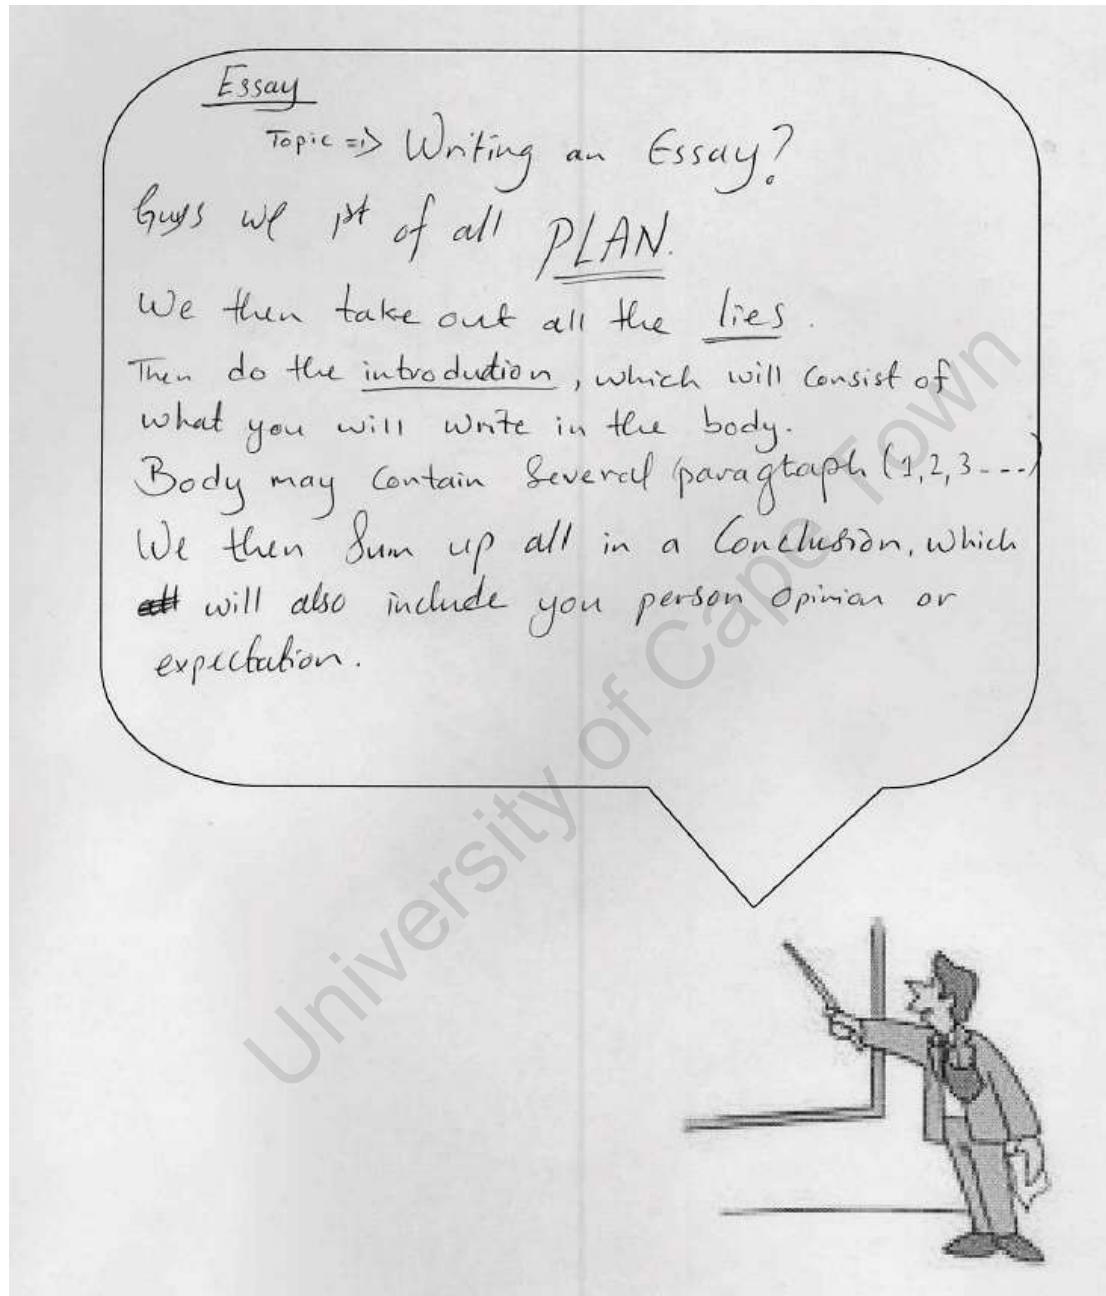 Essay
Topic => Writing an Essay?
Guys we 1st of all PLAN.
We then take out all the lies.
Then do the introdution, which will consist of
what you will write in the body.
Body may contain several paragtaph (1,2,3----)
We then sum up all in a Conclusion, which
will also include you person opinion or
expectation.
University of Cape Town